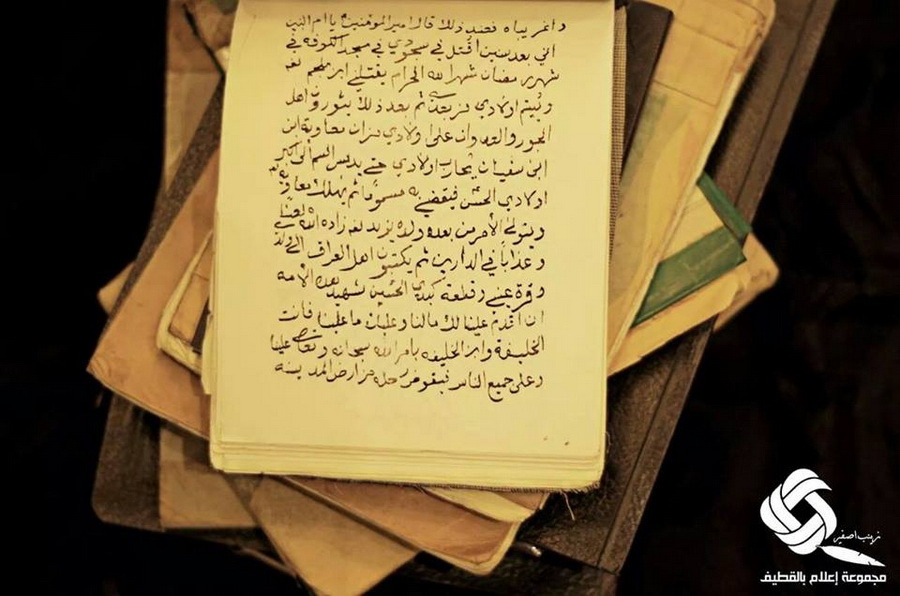 واغريباه فعند ذلك قال امير المؤمنين يا ام البنين
اني بعد سنين اقتل في سجودي في مسجد الكوفه في
شهر رمضان شهر الله الحرام يقتلني ابن ملجم لعنه
وييتم اولادي من بعدي ثم بعد ذلك يثورون اهل
الجور والعدوان على اولادي وان معاوية ابن
ابي سفيان يحارب اولادي حتى يدس السم الى اكبر
اولادي الحسن فيقضي به مسموما ثم يهلك معاوية
ويتولى الأمر من بعده ولده يزيد لعنه زاده الله لعنًا
وعذاباً في الدارين ثم يكتبون اهل العراق الى ولدي
وقرة عيني وقطعة كبدي الحسين شهيد هذه الأمه
ان اقدم علينا لك مالنا وعليك ما علينا فانت
الخليفة وابن الخليفه بامر الله سبحانه وتعالى علينا
وعلى جميع الناس فيقوض رحله من ارض المدينه
زينب اصفير
مجموعة إعلام بالقطيف